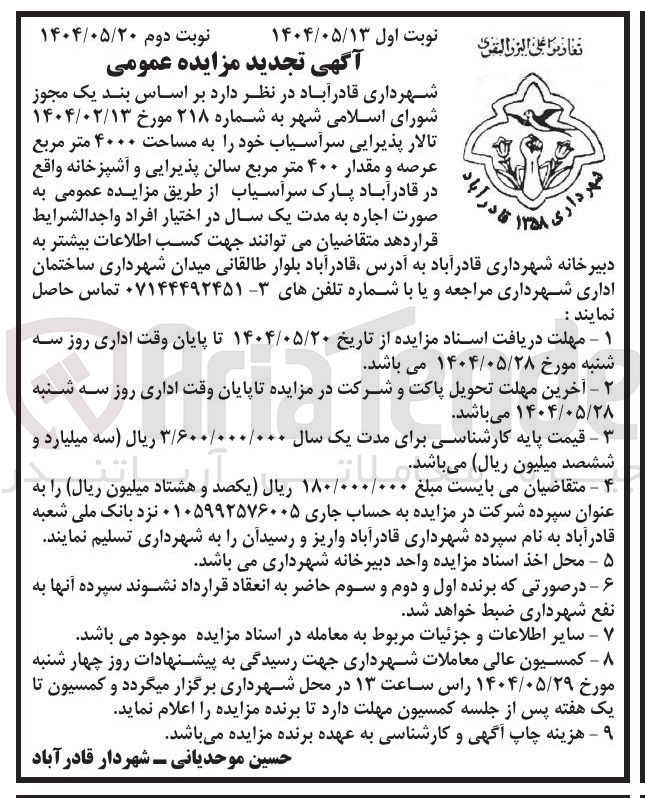 نوبت اول ۱۴۰۴/۰۵/۱۳ نوبت دوم ۱۴۰۴/۰۵/۲۰
آگهی تجدید مزایده عمومی
شهرداری قادرآباد ۱۳۵۸
شهرداری قادرآباد در نظر دارد بر اساس بند یک مجوز
شورای اسلامی شهر به شماره ۲۱۸ مورخ ۱۴۰۴/۰۲/۱۳
تالار پذیرایی سرآسیاب خود را به مساحت ۴۰۰۰ متر مربع
عرصه و مقدار ۴۰۰ متر مربع سالن پذیرایی و آشپزخانه واقع
در قادرآباد پارک سرآسیاب از طریق مزایده عمومی به
صورت اجاره به مدت یک سال در اختیار افراد واجدالشرایط
قراردهد متقاضیان می توانند جهت کسب اطلاعات بیشتر به
دبیرخانه شهرداری قادرآباد به آدرس ،قادرآباد بلوار طالقانی میدان شهرداری ساختمان
اداری شهرداری مراجعه و یا با شماره تلفن های ۳- ۰۷۱۴۴۴۹۲۴۵۱ تماس حاصل
نمایند :
۱ - مهلت دریافت اسناد مزایده از تاریخ ۱۴۰۴/۰۵/۲۰ تا پایان وقت اداری روز سه
شنبه مورخ ۱۴۰۴/۰۵/۲۸ می باشد.
۲ - آخرین مهلت تحویل پاکت و شرکت در مزایده تاپایان وقت اداری روز سه شنبه
۱۴۰۴/۰۵/۲۸ می‌باشد.
۳ - قیمت پایه کارشناسی برای مدت یک سال ۳/۶۰۰/۰۰۰/۰۰۰ ریال (سه میلیارد و
ششصد میلیون ریال) می‌باشد.
۴ - متقاضیان می بایست مبلغ ۱۸۰/۰۰۰/۰۰۰ ریال (یکصد و هشتاد میلیون ریال) را به
عنوان سپرده شرکت در مزایده به حساب جاری ۰۱۰۵۹۹۲۵۷۶۰۰۵ نزد بانک ملی شعبه
قادرآباد به نام سپرده شهرداری قادرآباد واریز و رسیدآن را به شهرداری تسلیم نمایند.
۵ - محل اخذ اسناد مزایده واحد دبیرخانه شهرداری می باشد.
۶ - درصورتی که برنده اول و دوم و سوم حاضر به انعقاد قرارداد نشوند سپرده آنها به
نفع شهرداری ضبط خواهد شد.
۷ - سایر اطلاعات و جزئیات مربوط به معامله در اسناد مزایده موجود می باشد.
۸ - کمسیون عالی معاملات شهرداری جهت رسیدگی به پیشنهادات روز چهار شنبه
مورخ ۱۴۰۴/۰۵/۲۹ راس ساعت ۱۳ در محل شهرداری برگزار میگردد و کمسیون تا
یک هفته پس از جلسه کمسیون مهلت دارد تا برنده مزایده را اعلام نماید.
۹ - هزینه چاپ آگهی و کارشناسی به عهده برنده مزایده می‌باشد.
حسین موحدیانی ــ شهردار قادرآباد
AriaTende